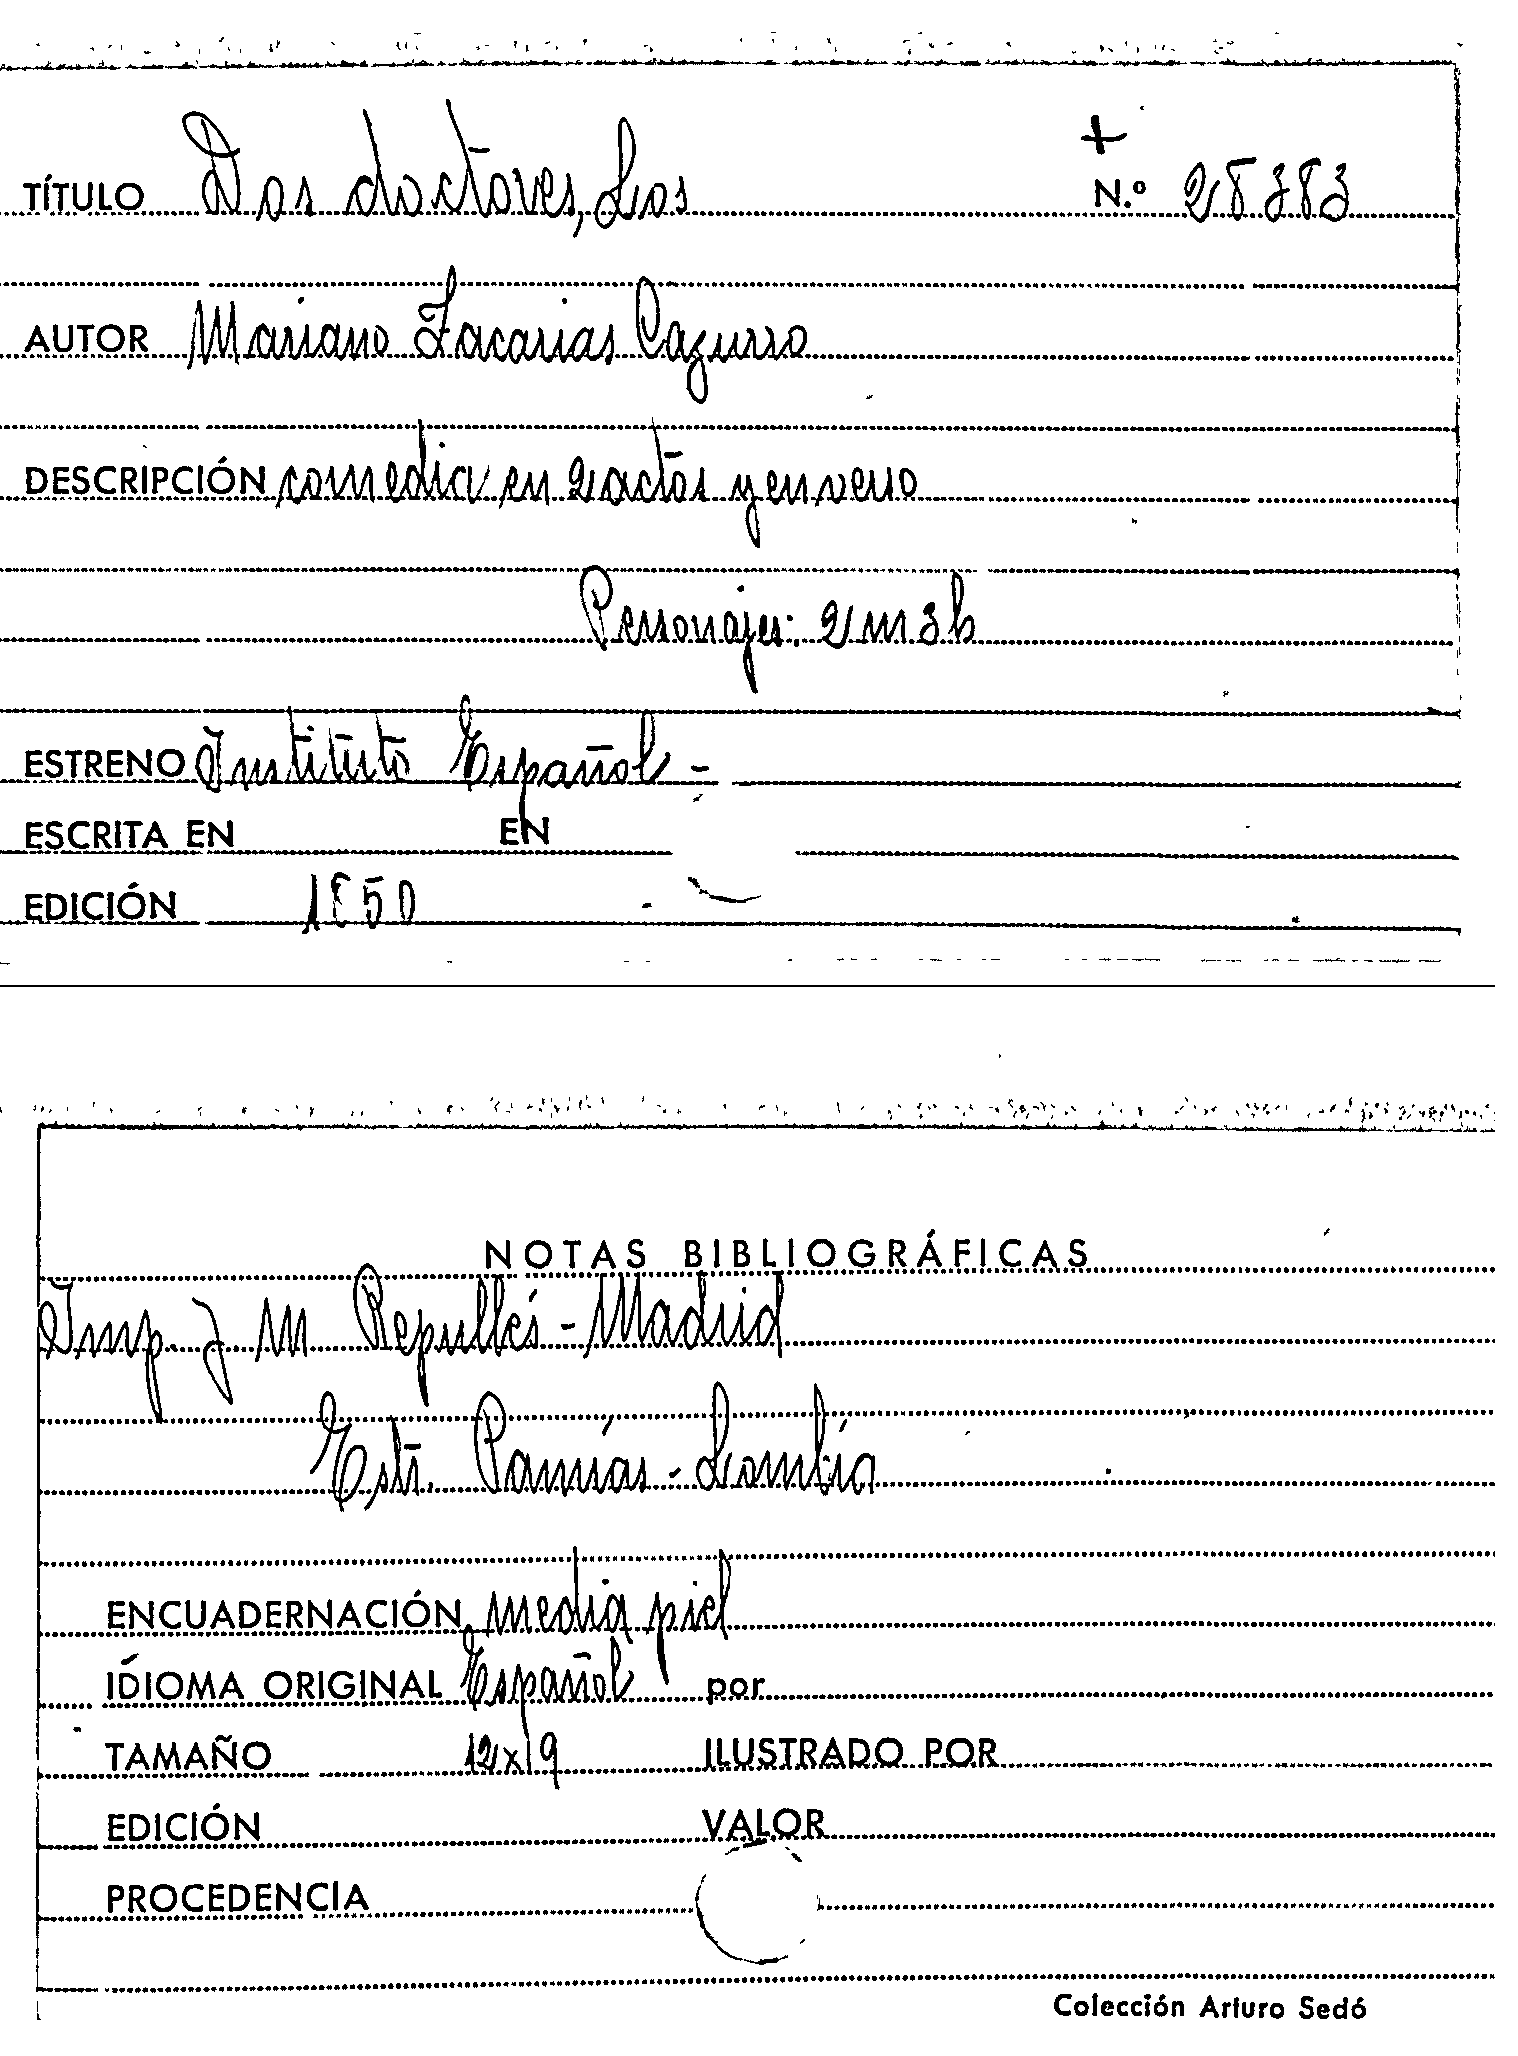 +
TÍTULO Dos doctores, Los N.º 28383
AUTOR Mariano Zacarias Cazurro
DESCRIPCIÓN comedia en 2 actos y en verso
Personajes: 2 m 3 h
ESTRENO Instituto Español -
ESCRITA EN EN
EDICIÓN 1850
NOTAS BIBLIOGRÁFICAS
Imp. J M Repullés - Madrid
Estr. Pamías - Lombía
ENCUADERNACIÓN media piel
IDIOMA ORIGINAL Español por
TAMAÑO 12x19 ILUSTRADO POR
EDICIÓN VALOR
PROCEDENCIA
Colección Arturo Sedó